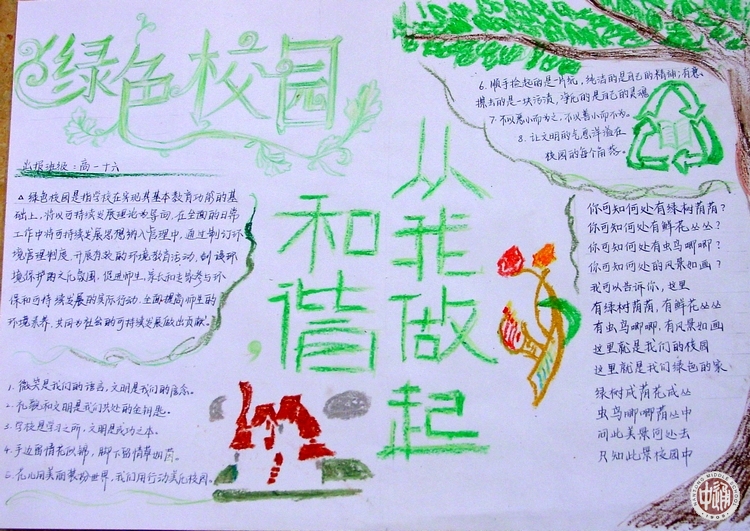 绿色校园
出报班级：高一十六
绿色校园是指学校在实现其基本教育功能的基
础上，将以可持续发展理论为导向，在全面的日常
工作中将可持续发展思想纳入管理中，通过制订环
境管理制度，开展有效的环境教育活动，创设环
境保护的文化氛围，促进师生、家长和专家参与环
保和可持续发展的实际行动，全面提高师生的
环境素养，共同为社会的可持续发展做出贡献。
1. 微笑是我们的语言，文明是我们的信念。
2. 礼貌和文明是我们共处的金钥匙。
3. 学校是学习之所，文明是成功之本。
4. 手边留情花似锦，脚下留情草如茵。
5. 花儿用美丽装扮世界，我们用行动美化校园。
和谐，
从我做起
6. 顺手捡起的是一片纸，纯洁的是自己的精神；有意
擦去的是一块污渍，净化的是自己的灵魂
7. 不以善小而为之，不以善小而不为。
8. 让文明的气息洋溢在
校园的每个角落。
你可知何处有绿树荫荫？
你可知何处有鲜花丛丛？
你可知何处有虫鸟唧唧？
你可知何处的风景如画？
我可以告诉你，这里
有绿树荫荫，有鲜花丛丛
有虫鸟唧唧，有风景如画
这里就是我们的校园
这里就是我们绿色的家
绿树成荫花成丛
虫鸟唧唧荫丛中
问此美景何处去
只知此景校园中
中通
1909